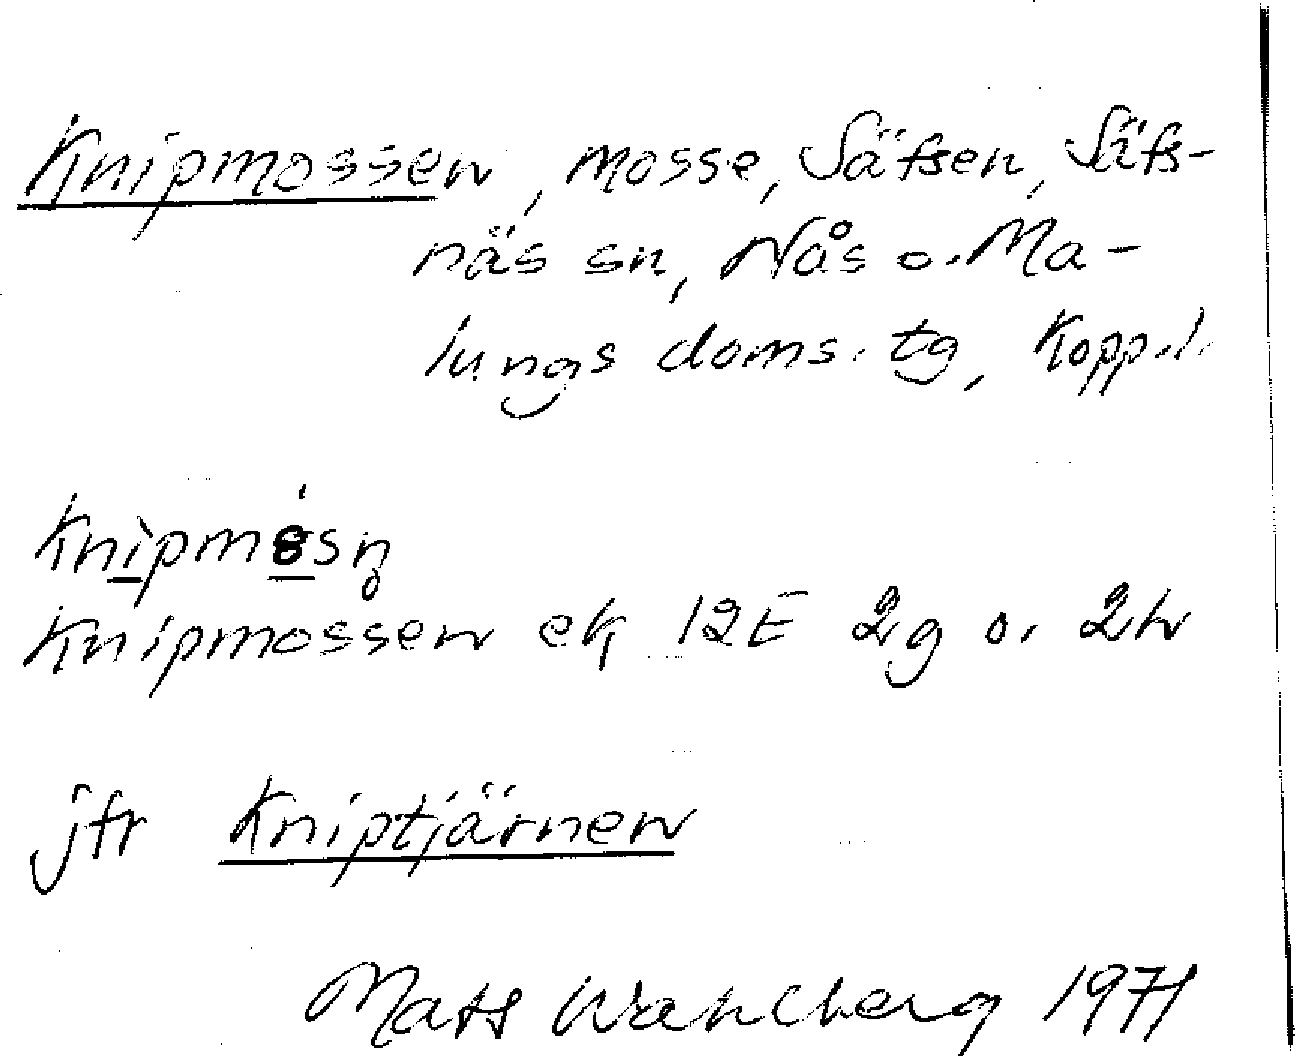 Knipmossen, mosse, Säfsen, Säfs-
näs sn, Nås o. Ma-
lungs doms. tg, Kopp.l.
Knipmossen ek 12E 2g o. 2h
jfr Kniptjärnen
Mats Wahlberg 1971